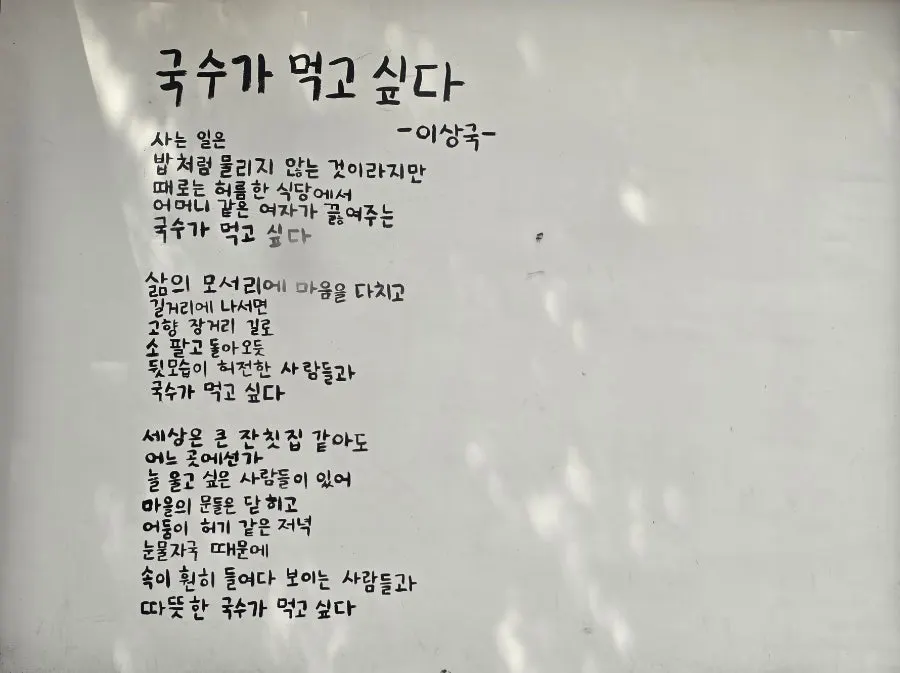 국수가 먹고 싶다
-이상국-
사는 일은
밥처럼 물리지 않는 것이라지만
때로는 허름한 식당에서
어머니 같은 여자가 끓여주는
국수가 먹고 싶다
삶의 모서리에 마음을 다치고
길거리에 나서면
고향 장거리 길로
소 팔고 돌아오듯
뒷모습이 허전한 사람들과
국수가 먹고 싶다
세상은 큰 잔칫집 같아도
어느 곳에선가
늘 울고 싶은 사람들이 있어
마을의 문들은 닫히고
어둠이 허기 같은 저녁
눈물자국 때문에
속이 훤히 들여다 보이는 사람들과
따뜻한 국수가 먹고 싶다